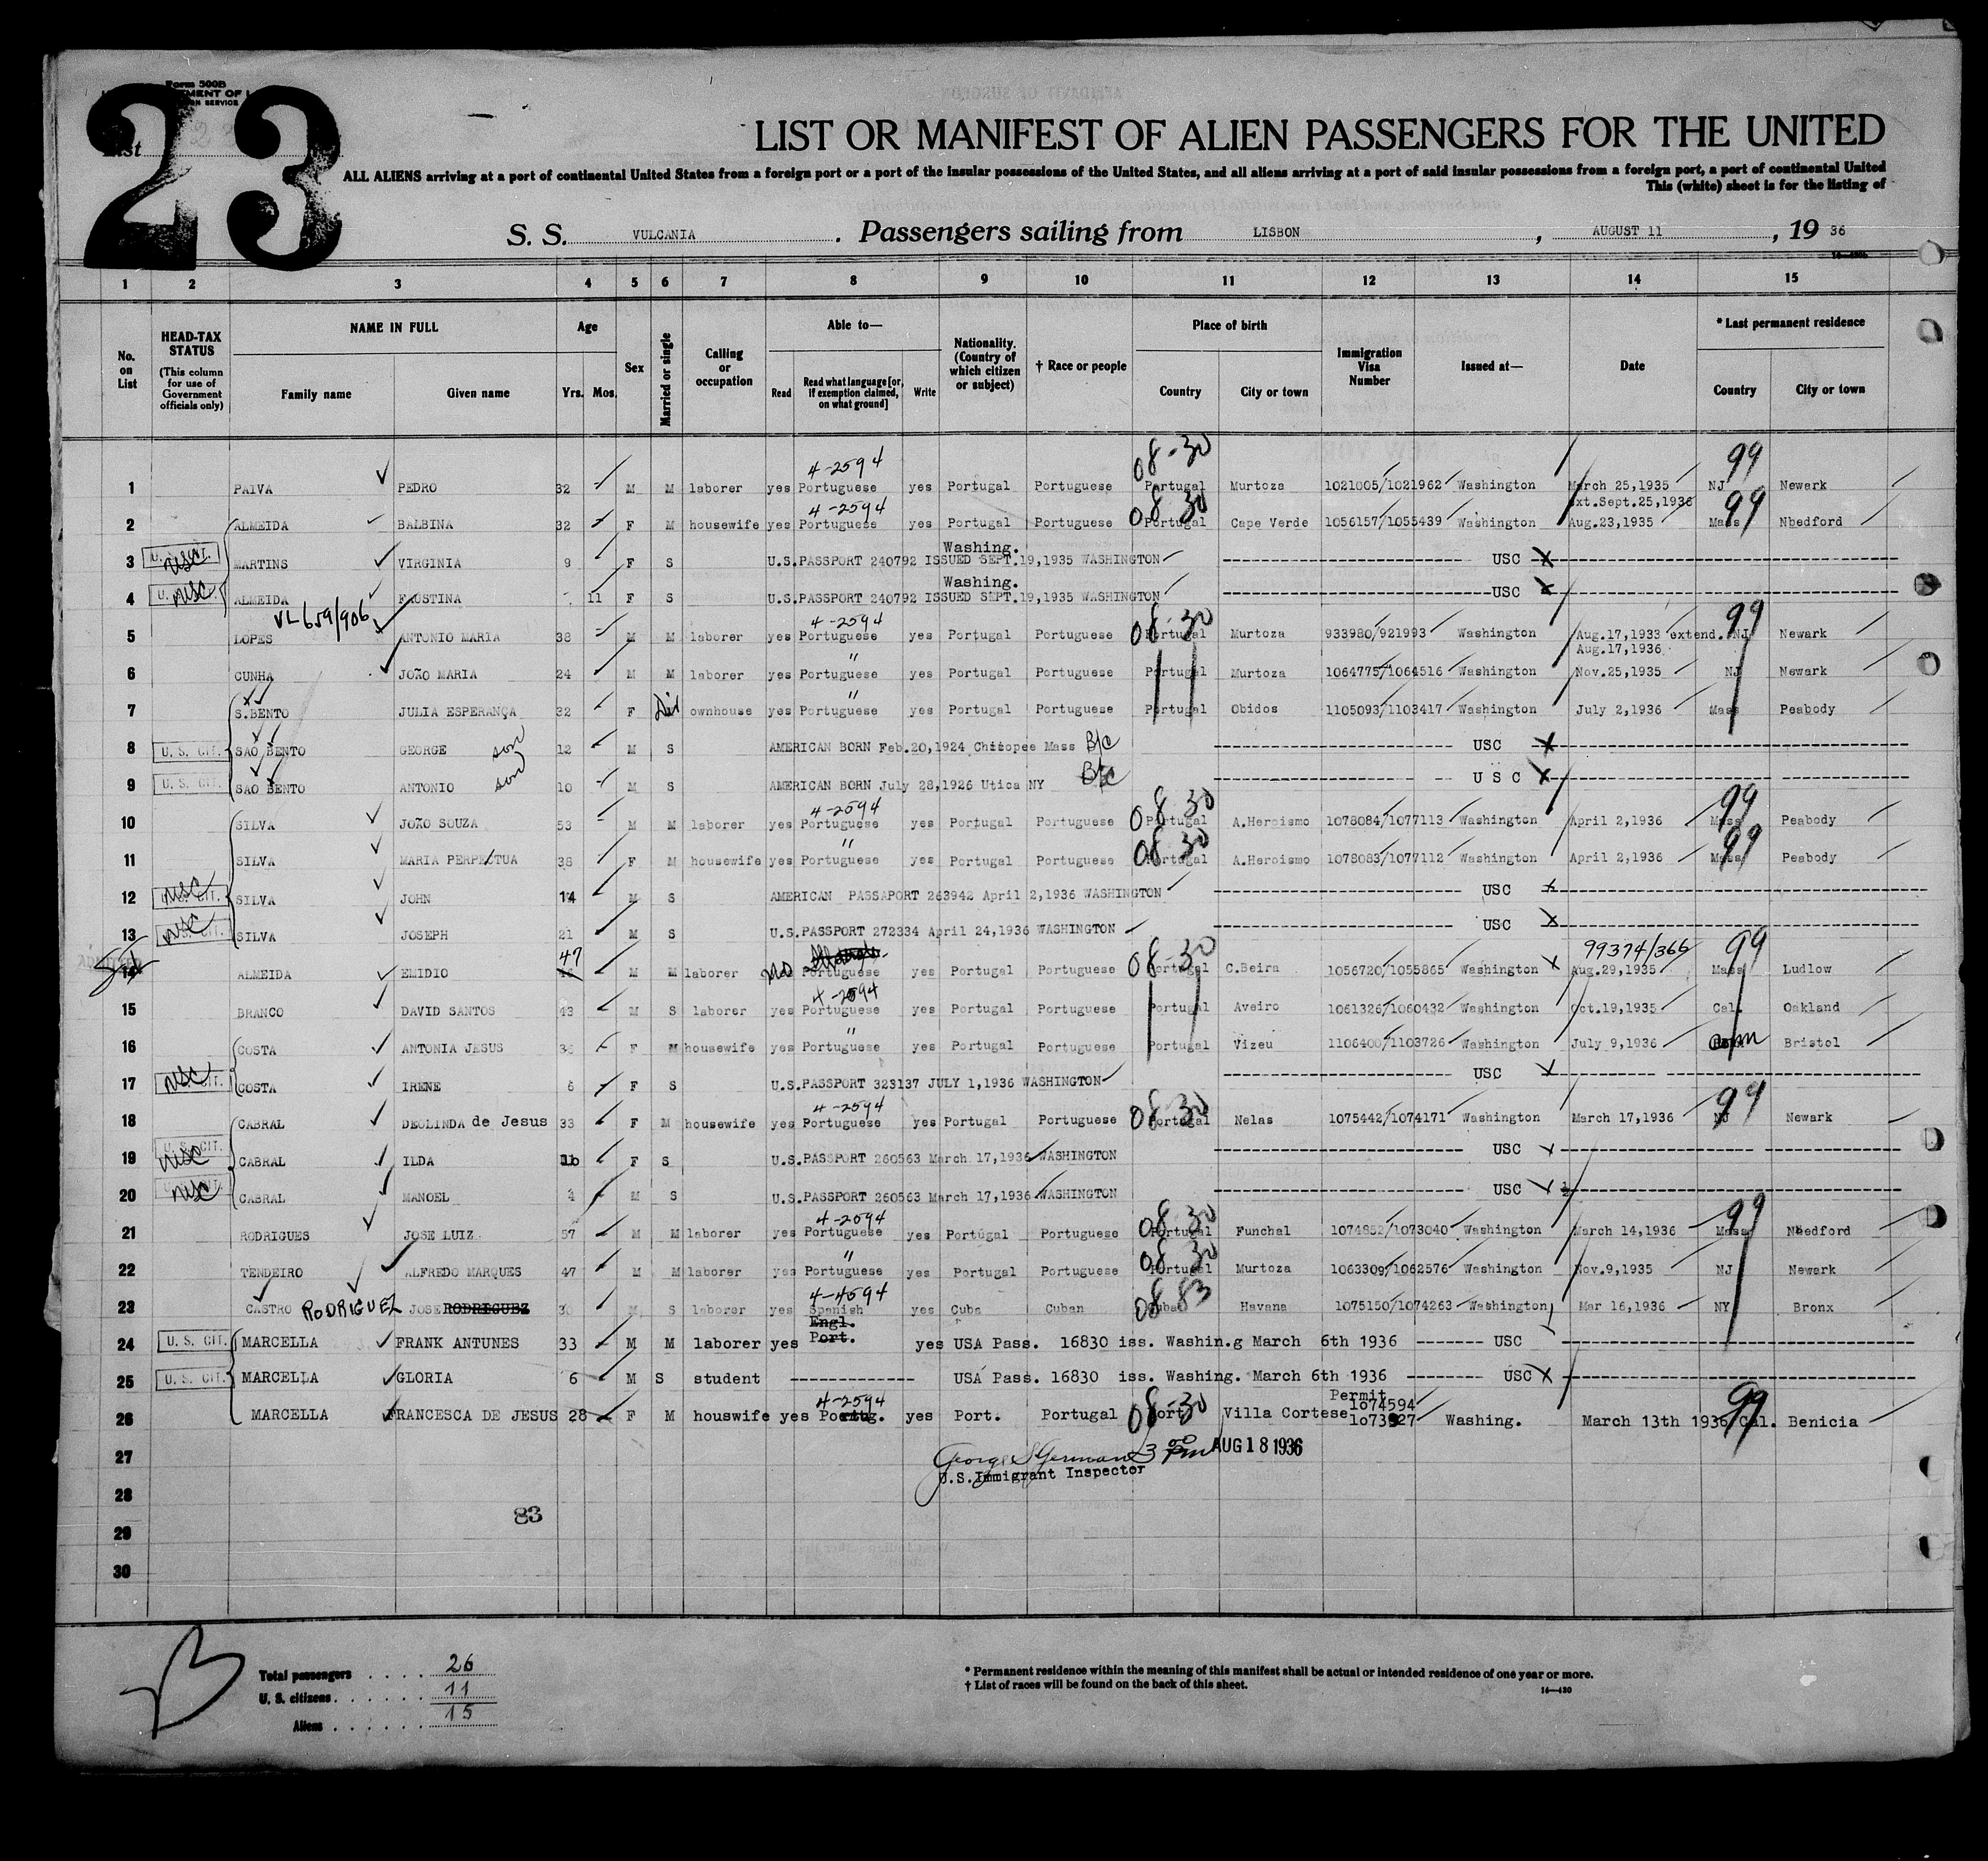 23
Form 500B
List
LIST OR MANIFEST OF ALIEN PASSENGERS FOR THE UNITED
ALL ALIENS arriving at a port of continental United States from a foreign port or a port of the insular possessions of the United States, and all aliens arriving at a port of said insular possessions from a foreign port, a port of continental United
This (white) sheet is for the listing of
S. S. VULCANIA. Passengers sailing from LISBON, AUGUST 11, 19 36
1 2 3 4 5 6 7 8 9 10 11 12 13 14 15
No. on List
HEAD-TAX STATUS (This column for use of Government officials only)
NAME IN FULL Family name Given name
Age Yrs. Mos.
Sex
Married or single
Calling or occupation
Able to— Read Read what language [or, if exemption claimed, on what ground] Write
Nationality. (Country of which citizen or subject)
† Race or people
Place of birth Country City or town
Immigration Visa Number
Issued at—
Date
* Last permanent residence Country City or town
4-2594 08-30 99
1 PAIVA PEDRO 32 M M laborer yes Portuguese yes Portugal Portuguese Portugal Murtoza 1021005/1021962 Washington March 25,1935 NJ Newark
4-2594 08 30 ext.Sept.25,1936 99
2 ALMEIDA BALBINA 32 F M housewife yes Portuguese yes Portugal Portuguese Portugal Cape Verde 1056157/1055439 Washington Aug.23,1935 Mass Nbedford
Washing.
3 USC MARTINS VIRGINIA 9 F S U.S.PASSPORT 240792 ISSUED SEPT.19,1935 WASHINGTON USC
Washing.
4 USC ALMEIDA FAUSTINA 11 F S U.S.PASSPORT 240792 ISSUED SEPT.19,1935 WASHINGTON USC
VL659/906 4-2594 08-30 99
5 LOPES ANTONIO MARIA 38 M M laborer yes Portuguese yes Portugal Portuguese Portugal Murtoza 933980/921993 Washington Aug.17,1933 extend. NJ Newark
Aug.17,1936
"
6 CUNHA JOÃO MARIA 24 M M laborer yes Portuguese yes Portugal Portuguese Portugal Murtoza 1064775/1064516 Washington Nov.25,1935 NJ Newark
"
7 S.BENTO JULIA ESPERANÇA 32 F ownhouse yes Portuguese yes Portugal Portuguese Portugal Obidos 1105093/1103417 Washington July 2,1936 Mass Peabody
8 U. S. CIT. SAO BENTO GEORGE son 12 M S AMERICAN BORN Feb.20,1924 Chicopee Mass B/c USC
9 U. S. CIT. SAO BENTO ANTONIO son 10 M S AMERICAN BORN July 28,1926 Utica NY B/c U S C
4-2594 08 30 99
10 SILVA JOÃO SOUZA 53 M M laborer yes Portuguese yes Portugal Portuguese Portugal A.Heroismo 1078084/1077113 Washington April 2,1936 Mass Peabody
" 08 30 99
11 SILVA MARIA PERPECTUA 38 F M housewife yes Portuguese yes Portugal Portuguese Portugal A.Heroismo 1078083/1077112 Washington April 2,1936 Mass Peabody
12 USC SILVA JOHN 14 M S AMERICAN PASSAPORT 263942 April 2,1936 WASHINGTON USC
13 USC SILVA JOSEPH 21 M S U.S.PASSPORT 272334 April 24,1936 WASHINGTON USC
47 08-30 99374/366 99
14 ALMEIDA EMIDIO M M laborer Portuguese yes Portugal Portuguese Portugal C.Beira 1056720/1055865 Washington Aug.29,1935 Mass Ludlow
4-2594
15 BRANCO DAVID SANTOS 43 M S laborer yes Portuguese yes Portugal Portuguese Portugal Aveiro 1061326/1060432 Washington Oct.19,1935 Cal. Oakland
"
16 COSTA ANTONIA JESUS F M housewife yes Portuguese yes Portugal Portuguese Portugal Vizeu 1106400/1103726 Washington July 9,1936 Bristol
17 USC COSTA IRENE 6 F S U.S.PASSPORT 323137 JULY 1,1936 WASHINGTON USC
4-2594 08 30 99
18 CABRAL DEOLINDA de Jesus 33 F M housewife yes Portuguese yes Portugal Portuguese Portugal Nelas 1075442/1074171 Washington March 17,1936 NJ Newark
19 USC CABRAL ILDA F S U.S.PASSPORT 260563 March 17,1936 WASHINGTON USC
20 USC CABRAL MANOEL 4 M S U.S.PASSPORT 260563 March 17,1936 WASHINGTON USC
4-2594 08 30 99
21 RODRIGUES JOSE LUIZ 57 M M laborer yes Portuguese yes Portugal Portuguese Portugal Funchal 1074852/1073040 Washington March 14,1936 Mass Nbedford
" 08 30
22 TENDEIRO ALFREDO MARQUES 47 M M laborer yes Portuguese yes Portugal Portuguese Portugal Murtoza 1063309/1062576 Washington Nov.9,1935 NJ Newark
4-4594 08 83
23 CASTRO RODRIGUEZ JOSE RODRIGUEZ 30 M S laborer yes Spanish yes Cuba Cuban Cuba Havana 1075150/1074263 Washington Mar 16,1936 NY Bronx
Engl.
24 U. S. CIT. MARCELLA FRANK ANTUNES 33 M M laborer yes Port. yes USA Pass. 16830 iss. Washin.g March 6th 1936 USC
25 U. S. CIT. MARCELLA GLORIA 6 M S student USA Pass. 16830 iss. Washing. March 6th 1936 USC
4-2594 08-30 Permit 1074594 99
26 MARCELLA FRANCESCA DE JESUS 28 F M houswife yes Portug. yes Port. Portugal Port. Villa Cortese Washing. March 13th 1936 Cal. Benicia
27 George S German 3 00 PM AUG 18 1936
U.S.Immigrant Inspector
28
83
29
30
Total passengers 26
U. S. citizens 11
Aliens 15
* Permanent residence within the meaning of this manifest shall be actual or intended residence of one year or more.
† List of races will be found on the back of this sheet.
14—420